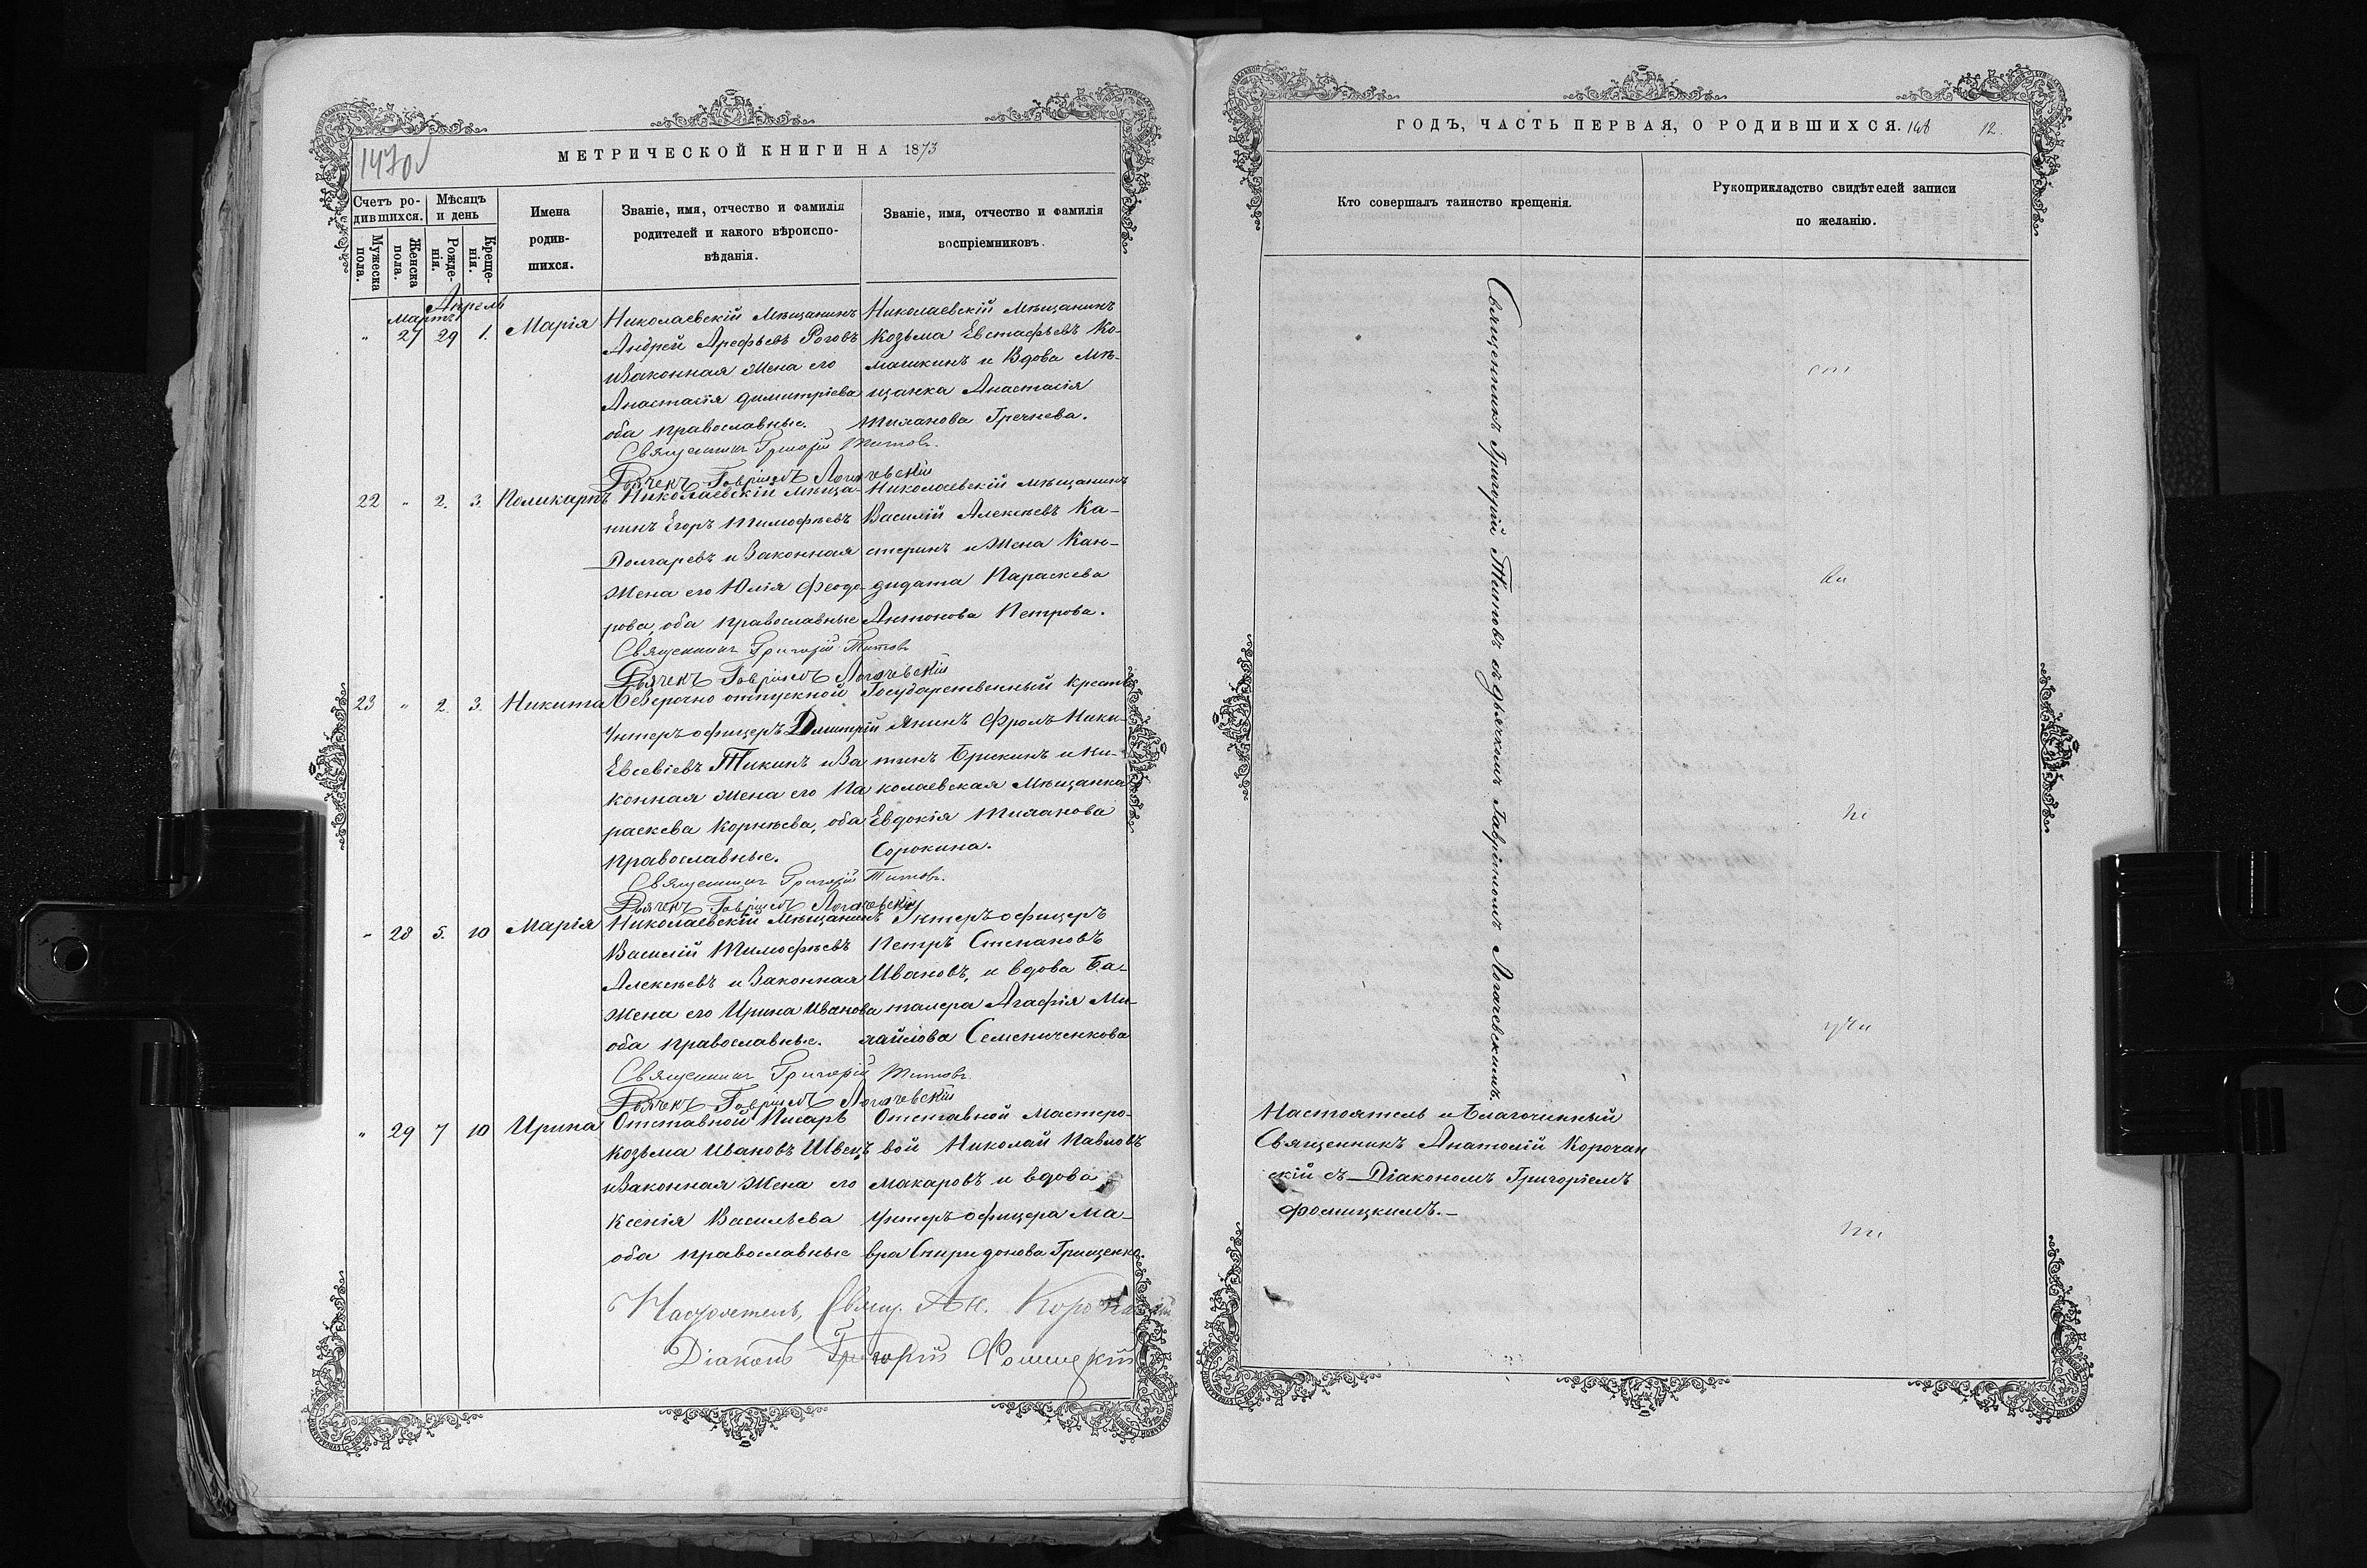 147об
МЕТРИЧЕСКОЙ КНИГИ НА 1873
Счетъ родившихся.
Мѣсяцъ и день
Имена родившихся.
Званіе, имя, отчество и фамилія родителей и какого вѣроисповѣданія.
Званіе, имя, отчество и фамилія воспріемниковъ.
Мужеска пола.
Женска пола.
Рожденія.
Крещенія.
Апрель
Мартъ
" 27 29 1. Марія
Николаевскій Мѣщанинъ
Андрей Арефьевъ Роговъ
и Законная Жена его
Анастасія Димитріева
оба православные.
Николаевскій Мѣщанинъ
Козьма Евстафьевъ Ко-
машкинъ и Вдова Мѣ-
щанка Анастасія
Тиханова Гречнева.
Священникъ Григорій Титовъ.
Дьячекъ Гавріилъ Логачевскій
22 " 2. 3. Поликарпъ
Николаевскій Мѣща-
нинъ Егоръ Тимофѣевъ
Долгаревъ и Законная
Жена его Юлія Феодо-
рова, оба православные
Николаевскій Мѣщанинъ
Василій Алексѣевъ Ка-
стеринъ и Жена Кан-
дидата Параскева
Антонова Петрова.
Священникъ Григорій Титовъ
Дьячекъ Гавріилъ Логачевскій
23 " 2. 3. Никита
Безсрочно отпускной
Унтеръ офицеръ Дмитрій
Евсевіевъ Тикинъ и За
конная Жена его Па
раскева Корнѣева, оба
православные.
Государственный Крестъ
янинъ Фролъ Ники-
тинъ Брикинъ и Ни-
колаевская Мѣщанка
Евдокія Тиханова
Сорокина.
Священникъ Григорій Титовъ.
Дьячекъ Гавріилъ Логачевскій
" 28 5. 10 Марія
Николаевскій Мѣщанинъ
Василій Тимофѣевъ
Алексѣевъ и Законная
Жена его Ирина Иванова
оба православные.
Унтеръ офицеръ
Петръ Степановъ
Ивановъ, и вдова Ба-
талера Агафія Ми-
хайлова Семениченкова
Священникъ Григорій Титовъ.
Дьячекъ Гавріилъ Логачевскій
" 29 7 10 Ирина
Отставной Писарь
Козьма Ивановъ Швецъ
и Законная Жена его
Ксенія Васильева
оба православные
Отставной Мастеро-
вой Николай Павловъ
Макаровъ и вдова
Унтеръ офицера Ма-
вра Спиридонова Грищенко.
Настоятель, Свящ. Ан. Корочанскій
Діаконъ Григорій Фомицкій
ГОДЪ, ЧАСТЬ ПЕРВАЯ, О РОДИВШИХСЯ. 148 12.
Кто совершалъ таинство крещенія.
Рукоприкладство свидѣтелей записи
по желанію.
Священникъ Григорій Титовъ съ дьячкомъ Гавріиломъ Логачевскимъ.
Настоятель и Благочинный
Священникъ Анатолій Корочан
скій съ Діакономъ Григоріемъ
Фомицкимъ.